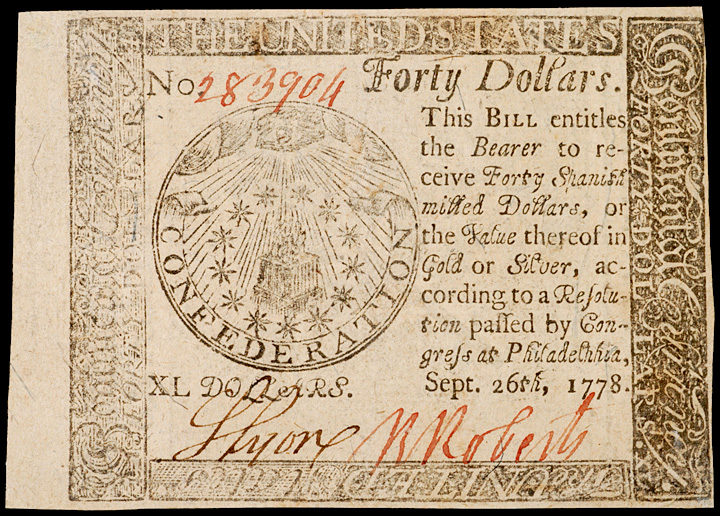 THE UNITED STATES
No. 283904 Forty Dollars.
This BILL entitles
the Bearer to re-
ceive Forty Spanish
milled Dollars, or
the Value thereof in
Gold or Silver, ac-
cording to a Resolu-
tion passed by Con-
gress at Philadelphia,
Sept. 26th, 1778.
CONFEDERATION
XL DOLLARS.
S Lyon R Roberts
Continental Currency
FORTY DOLLARS
Continental Currency
FORTY DOLLARS